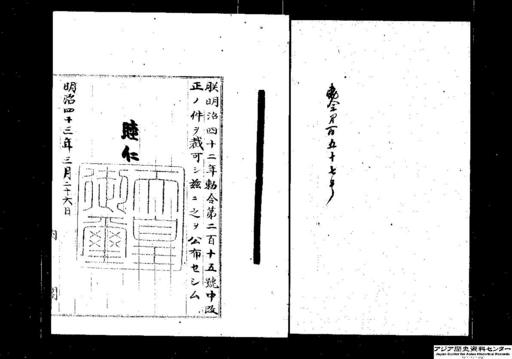 勅令第百五十七号
朕明治四十二年勅令第二百十五號中改
正ノ件ヲ裁可シ茲ニ之ヲ公布セシム
睦仁
天皇御璽
明治四十三年三月二十六日
内閣
アジア歴史資料センター
Japan Center for Asian Historical Records